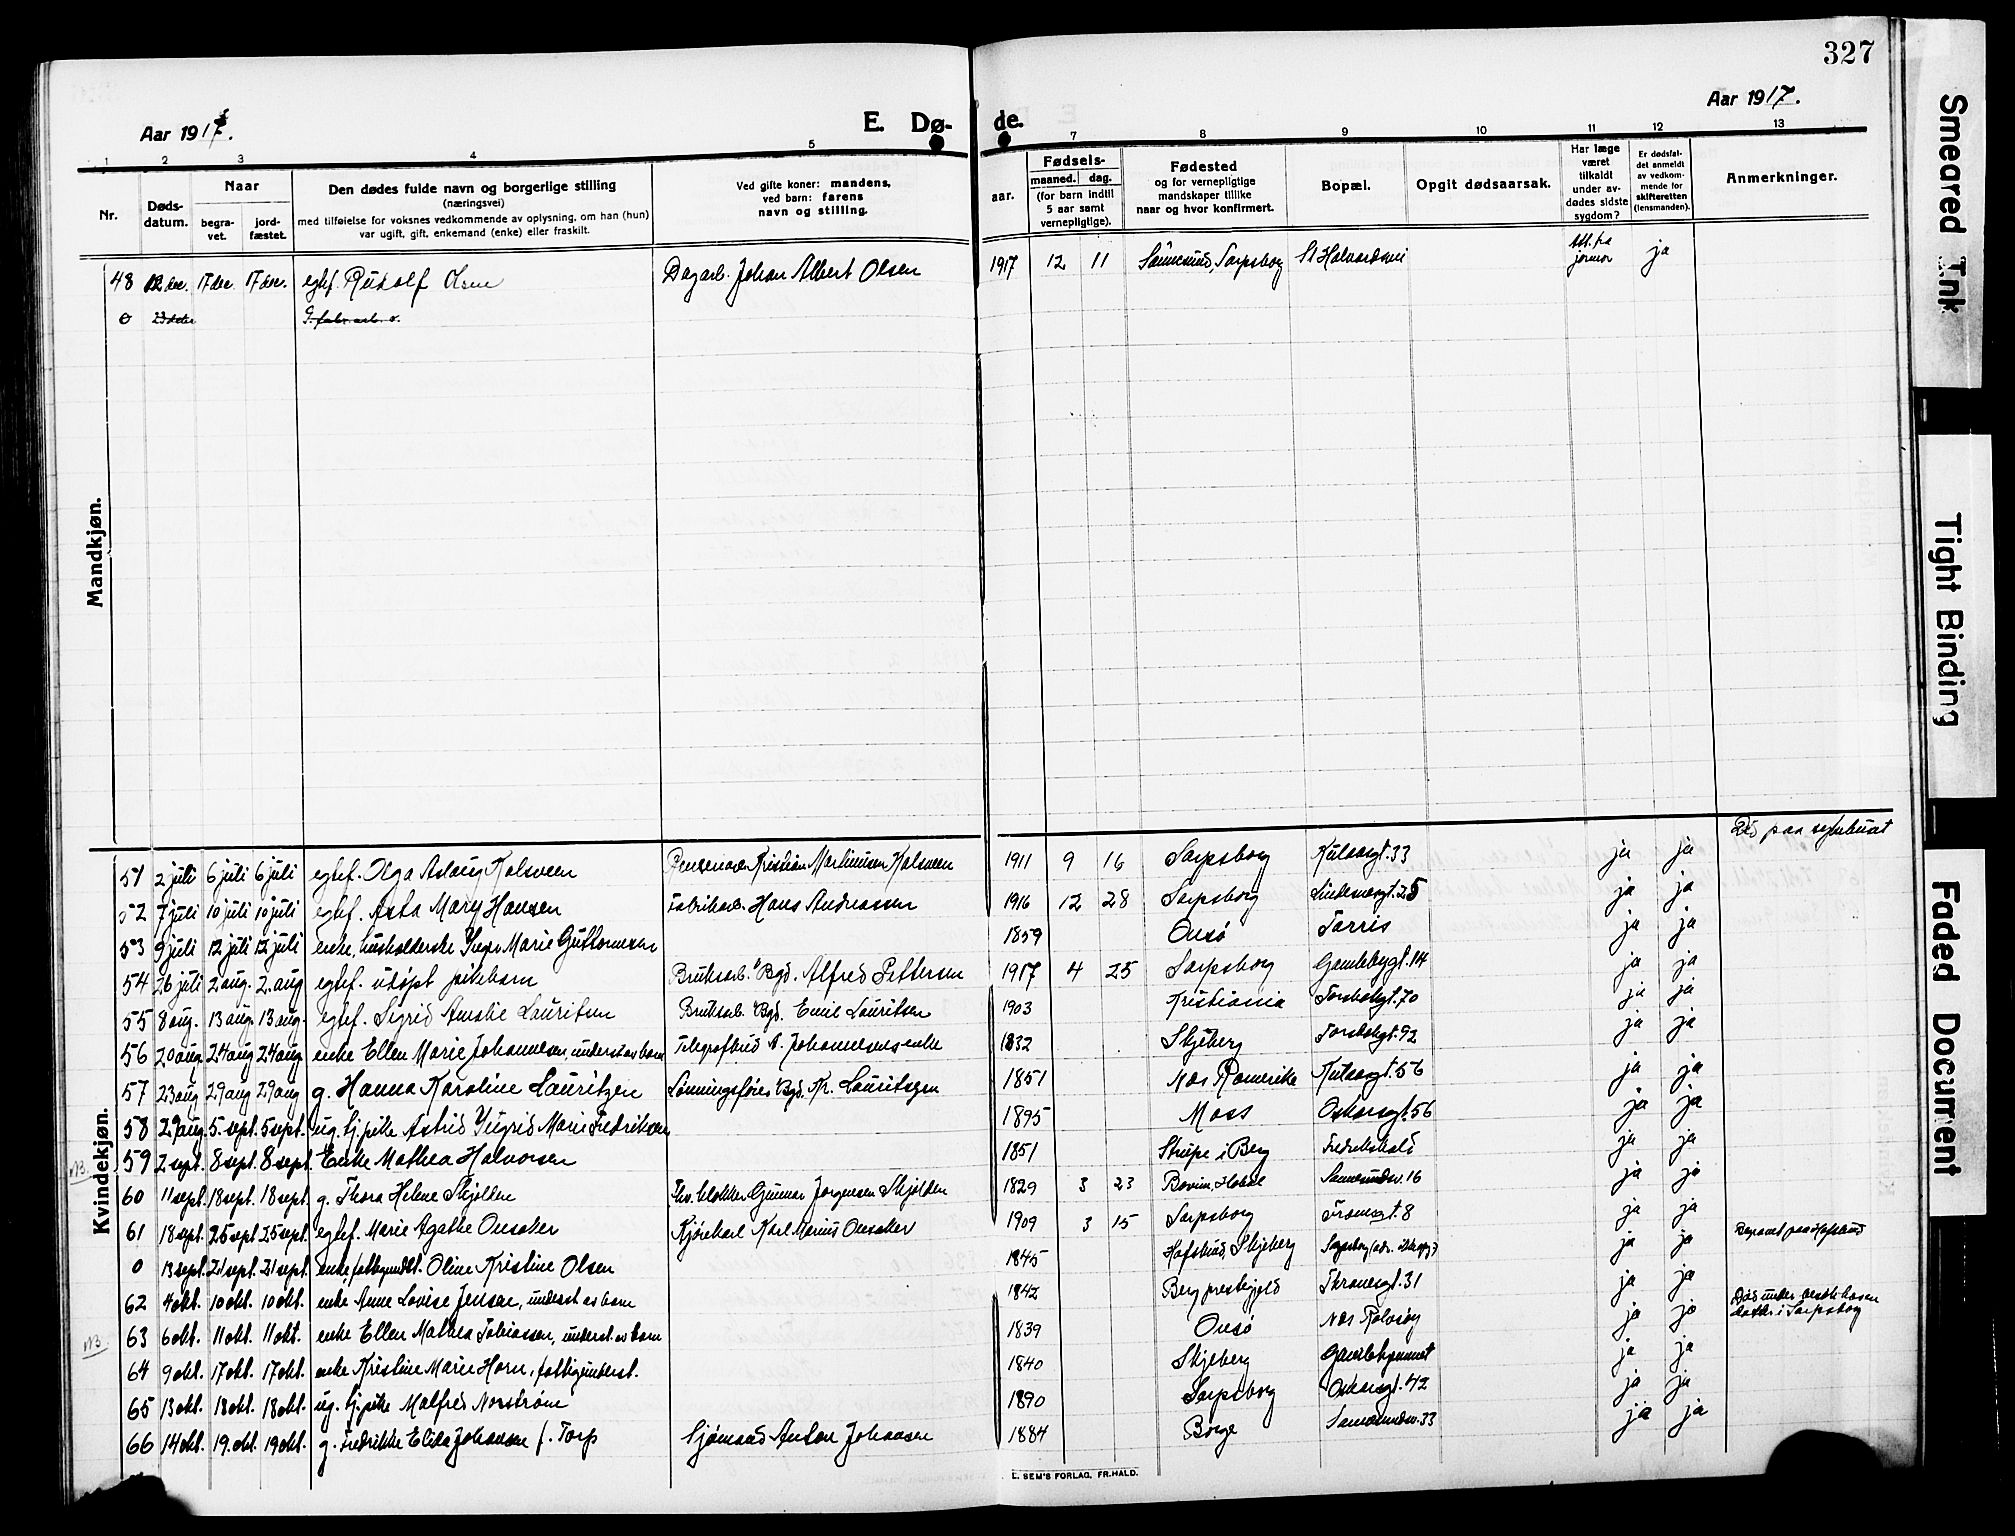 327
Aar 1917.
E. Dø- de.
Aar 1917.
1 2 3 4 5 7 8 9 10 11 12 13
Nr.
Døds-
datum.
Naar
begra-
vet.
jord-
fæstet.
Den dødes fulde navn og borgerlige stilling
(næringsvei)
med tilføielse for voksnes vedkommende av oplysning, om han (hun)
var ugift, gift, enkemand (enke) eller fraskilt.
Ved gifte koner: mandens,
ved barn: farens
navn og stilling.
Fødsels-
aar.
maaned. dag.
(for barn indtil
5 aar samt
vernepligtige).
Fødested
og for vernepligtige
mandskaper tillike
naar og hvor konfirmert.
Bopæl.
Opgit dødsaarsak.
Har læge
været
tilkaldt
under av-
dødes sidste
sygdom?
Er dødsfal-
det anmeldt
av vedkom-
mende for
skifteretten
(lensmanden).
Anmerkninger.
Mandkjøn.
48 12 dec. 17 dec. 17 dec. egtef. Rudolf Olsen Dagarb. Johan Albert Olsen 1917 12 11 Sannesund, Sarpsborg St Halvardsvei Att. fra jormor ja
0
Kvindekjøn.
Død paa sykehuset
51 2 juli 6 juli 6 juli egtef. Olga Aslaug Kolsveen Kristian Martinusen Kolsveen 1911 9 16 Sarpsborg Kulaasgt. 33 ja ja
52 7 juli 10 juli 10 juli egtef. Asta Mary Hansen Fabrikarb. Hans Andreassen 1916 12 28 Sarpsborg Lindemansgt. 25 ja ja
53 9 juli 12 juli 12 juli enke, husholderske Inger Marie Guttormsen 1859 Onsø Tarris ja ja
54 26 juli 2 aug. 2. aug egtef. utøpt pikebarn Bruksarb. Bgd. Alfred Pettersen 1917 4 25 Sarpsborg Gamlebygt. 14 ja ja
55 8 aug. 13 aug. 13 aug. egtef. Sigrid Amalie Lauritsen Bruksarb. Bgd. Emil Lauritsen 1903 Kristiania Torsbekgt. 70 ja ja
56 20 aug. 24 aug 24 aug enke Ellen Marie Johannesen, underst. av barn Telegrafbud A. Johannesens enke 1832 Skjeberg Torsbekgt. 92 ja ja
57 23 aug 29 aug 29 aug g. Hanna Karoline Lauritzen Lønningsfører Bgd. Kr. Lauritzen 1851 Næs Romerike Kulaasgt. 56 ja ja
58 29 aug. 5. sept. 5 sept. ug. tj. pike Astrid Yngrid Marie Fredriksen 1895 Moss Oskarsgt. 56 ja ja
NB. 59 2 sept. 8 sept. 8 sept. Enke Mathea Halvorsen 1851 Strupe i Berg Fredrikshald ja ja
60 11 sept. 18 sept. 18 sept. g. Thora Helene Skjolden Fhv. klokker Gunnar Jørgensen Skjolden 1829 3 23 Bovim, Hobøl Sannesundsv. 16 ja ja
61 18 sept. 25 sept. 25 sept. egtef. Marie Agathe Onsaker Kjørekarl Karl Marius Onsaker 1909 3 15 Sarpsborg Tromsgt. 8 ja ja
0 13 sept. 21 sept. 21 sept. enke, fattigundst. Oline Kristine Olsen 1845 Hafslund, Skjeberg Sarpsborg ja ja Begravet paa Hafslund
62 4 okt. 10 okt. 10 okt. enke Anne Lovise Jensen, underst. av barn 1842 Berg prestegjeld Thranesgt. 31 ja ja
NB. 63 6 okt. 11 okt. 11 okt. enke Ellen Mathea Tobiassen, underst. av barn 1839 Onsø Næs Rolvsøy ja ja Død under besøk hos en datter i Sarpsborg
64 9 okt. 17 okt. 17 okt. enke Kristine Marie Horn, fattigunderst. 1840 Skjeberg Gamlehjemmet ja ja
65 13 okt. 18 okt. 18 okt. ug. tj. pike Malfred Norstrøm 1890 Sarpsborg Oskarsgt. 42 ja ja
66 14 okt. 19. okt. 19 okt. g. Fredrikke Elida Johansen f. Torp Sjømand Anton Johansen 1884 Borge Sannesundsv. 33 ja ja
E. SEM'S FORLAG, FR.HALD.
Smeared Ink
Tight Binding
Faded Document